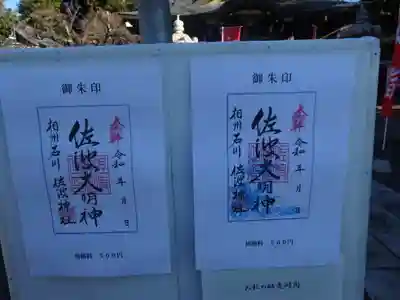 御朱印
奉拝
佐波大明神
令和 年 月 日
相州石川 佐波神社
初穂料 500円
御朱印
奉拝
佐波大明神
令和 年 月 日
相州石川 佐波神社
初穂料 500円